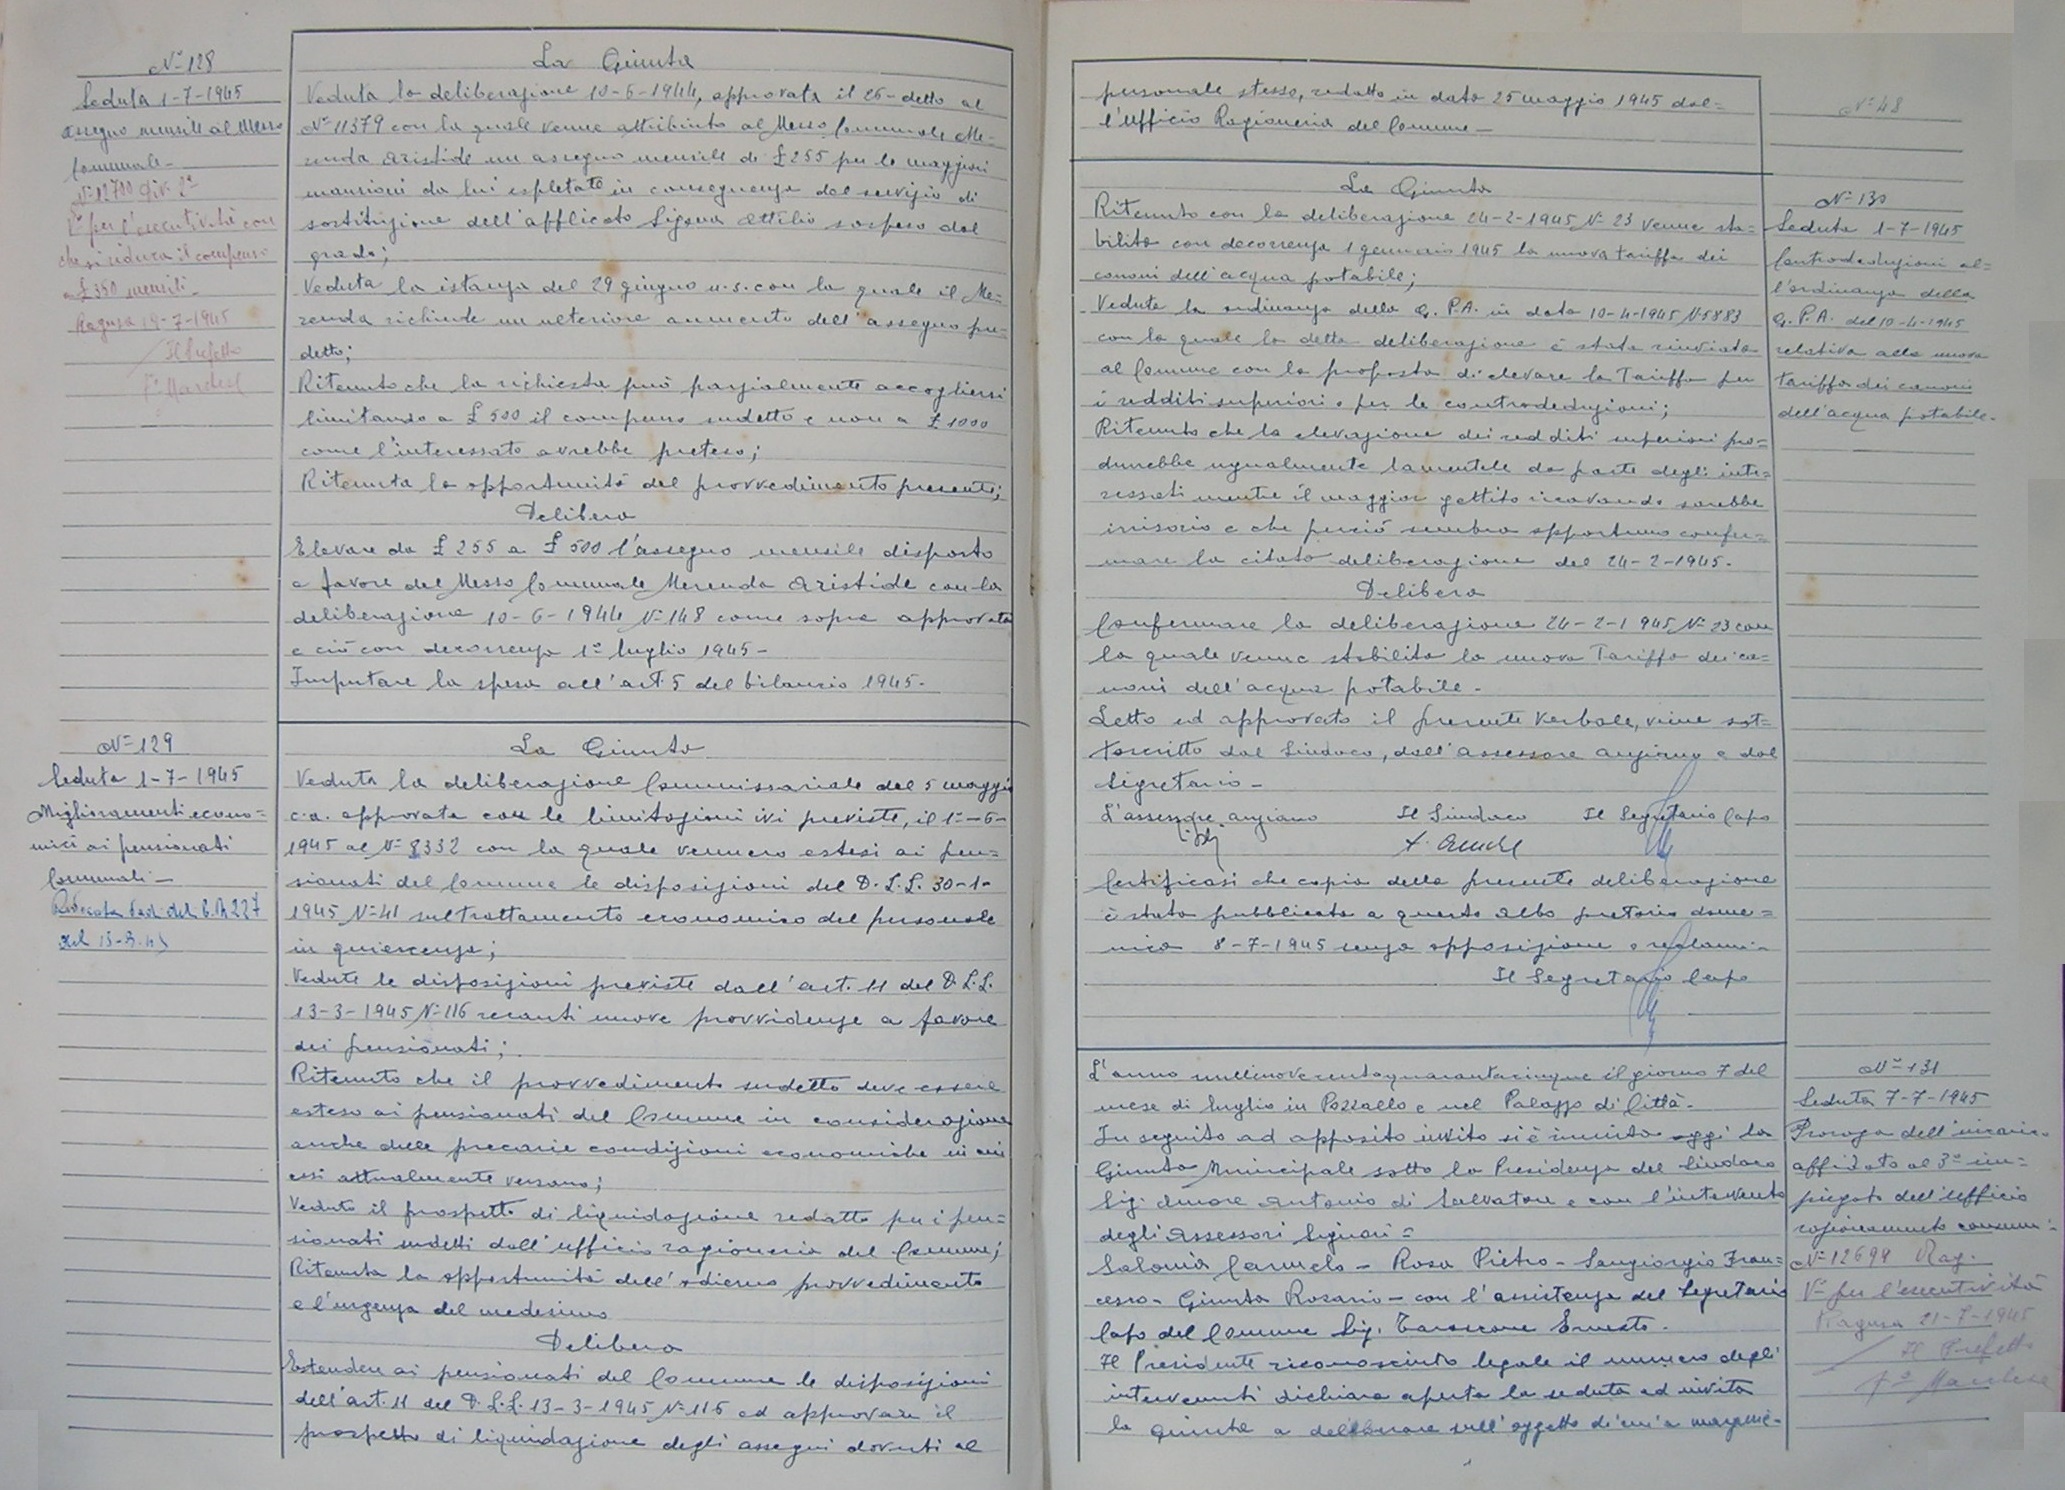 N° 128
Seduta 1-7-1945
assegno mensile al Messo
Comunale -
N° 12700 Div. 2ª
V° per l'esecutività con
che si riduca il compenso
a £ 350 mensili -
Ragusa 19-7-1945
Il Prefetto
La Giunta
Veduta la deliberazione 10-6-1944, approvata il 26 detto al
N° 11379 con la quale venne attribuito al Messo Comunale Me=
renda Aristide un assegno mensile di £ 255 per le maggiori
mansioni da lui espletate in conseguenza del servizio di
sostituzione dell'applicato Attilio sospeso dal
grado;
Veduta la istanza del 29 giugno u.s. con la quale il Me=
renda richiede un ulteriore aumento dell'assegno pre=
detto;
Ritenuto che la richiesta può parzialmente accogliersi
limitando a £ 500 il compenso sudetto e non a £ 1000
come l'interessato avrebbe preteso;
Ritenuta la opportunità del provvedimento presente;
Delibera
Elevare da £ 255 a £ 500 l'assegno mensile disposto
a favore del Messo Comunale Merenda Aristide con la
deliberazione 10-6-1944 N° 148 come sopra approvata
e ciò con decorrenza 1° luglio 1945 -
Imputare la spesa all'art. 5 del bilancio 1945 -
N° 129
Seduta 1-7-1945
Miglioramenti econo=
mici ai pensionati
Comunali -
del 227
del
La Giunta
Veduta la deliberazione Commissariale del 5 maggio
c.a. approvata con le limitazioni ivi previste, il 1°-6-
1945 al N° 8332 con la quale vennero estesi ai pen=
sionati del Comune le disposizioni del D.L.L. 30-1-
1945 N° 41 sul trattamento economico del personale
in quiescenza;
Vedute le disposizioni previste dall'art. 11 del D.L.L.
13-3-1945 N° 116 recanti nuove provvidenze a favore
dei pensionati;
Ritenuto che il provvedimento sudetto deve essere
esteso ai pensionati del Comune in considerazione
anche delle precarie condizioni economiche in cui
essi attualmente versano;
Veduto il prospetto di liquidazione redatto per i pen=
sionati sudetti dall'ufficio ragioneria del Comune;
Ritenuta la opportunità dell'odierno provvedimento
e l'urgenza del medesimo
Delibera
Estendere ai pensionati del Comune le disposizioni
dell'art. 11 del D.L.L. 13-3-1945 N° 116 ed approvare il
prospetto di liquidazione degli assegni dovuti al
N° 48
personale stesso, redatto in data 25 maggio 1945 dal=
l'Ufficio Ragioneria del Comune -
La Giunta
Ritenuto con la deliberazione 24-2-1945 N° 23 venne sta=
bilito con decorrenza 1 gennaio 1945 la nuova tariffa dei
canoni dell'acqua potabile;
Veduta la ordinanza della G.P.A. in data 10-4-1945 N° 5883
con la quale la detta deliberazione è stata rinviata
al Comune con la proposta di elevare la Tariffa per
i redditi superiori o per le controdeduzioni;
Ritenuto che la elevazione dei redditi superiori pro=
durrebbe ugualmente lamentele da parte degli inte=
ressati mentre il maggior gettito ricavando sarebbe
irrisorio e che perciò sembra opportuno confer=
mare la citata deliberazione del 24-2-1945.
Delibera
Confermare la deliberazione 24-2-1945 N° 23 con
la quale venne stabilita la nuova Tariffa dei ca=
noni dell'acqua potabile -
Letto ed approvato il presente verbale, viene sot=
toscritto dal Sindaco, dall'assessore anziano e dal
Segretario -
L'assessore anziano Il Sindaco Il Segretario Capo
Certificasi che copia della presente deliberazione
è stata pubblicata a questo albo pretorio dome=
nica 8-7-1945 senza opposizione o reclami -
Il Segretario Capo
N° 130
Seduta 1-7-1945
Controdeduzioni al=
l'ordinanza della
G.P.A. del 10-4-1945
relativa alla nuova
tariffa dei canoni
dell'acqua potabile -
L'anno millenovecentoquarantacinque il giorno 7 del
mese di luglio in Pozzallo e nel Palazzo di Città -
In seguito ad apposito invito si è riunita oggi la
Giunta Municipale sotto la Presidenza del Sindaco
Sig. Amore Antonio di Salvatore e con l'intervento
degli Assessori Signori =
Salonia Carmelo - Rosa Pietro - Sangiorgio Fran=
cesco - Giunta Rosario - con l'assistenza del Segretario
Capo del Comune Sig. Ernesto -
Il Presidente riconosciuto legale il numero degli
intervenuti dichiara aperta la seduta ed invita
la Giunta a deliberare sull'oggetto di cui a margine -
N° 131
Seduta 7-7-1945
Proroga dell'incarico
affidato al 3° im=
piegato dell'ufficio
razionamento consumi
N° 12699 Rag.
V° per l'esecutività
Ragusa 21-7-1945
Il Prefetto